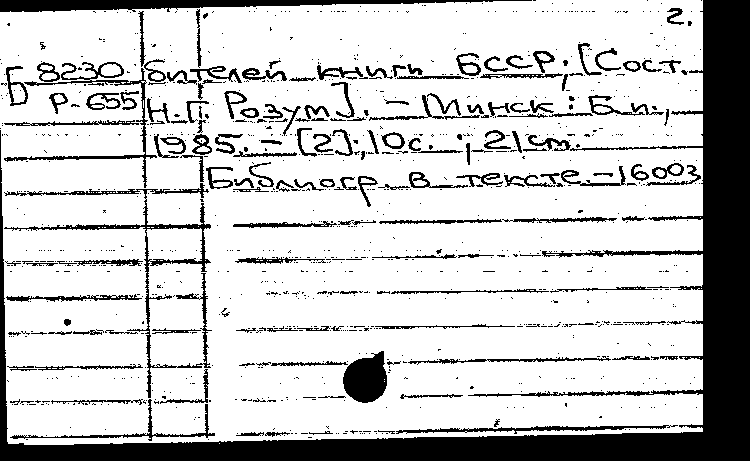 2.
Б 8230 бителей книги БССР; [Сост.
Р-655 Н.Г. Розум]. - Минск : Б.и.,
1985. - [2], 10с. ; 21см.
Библиогр. в тексте. - 16003